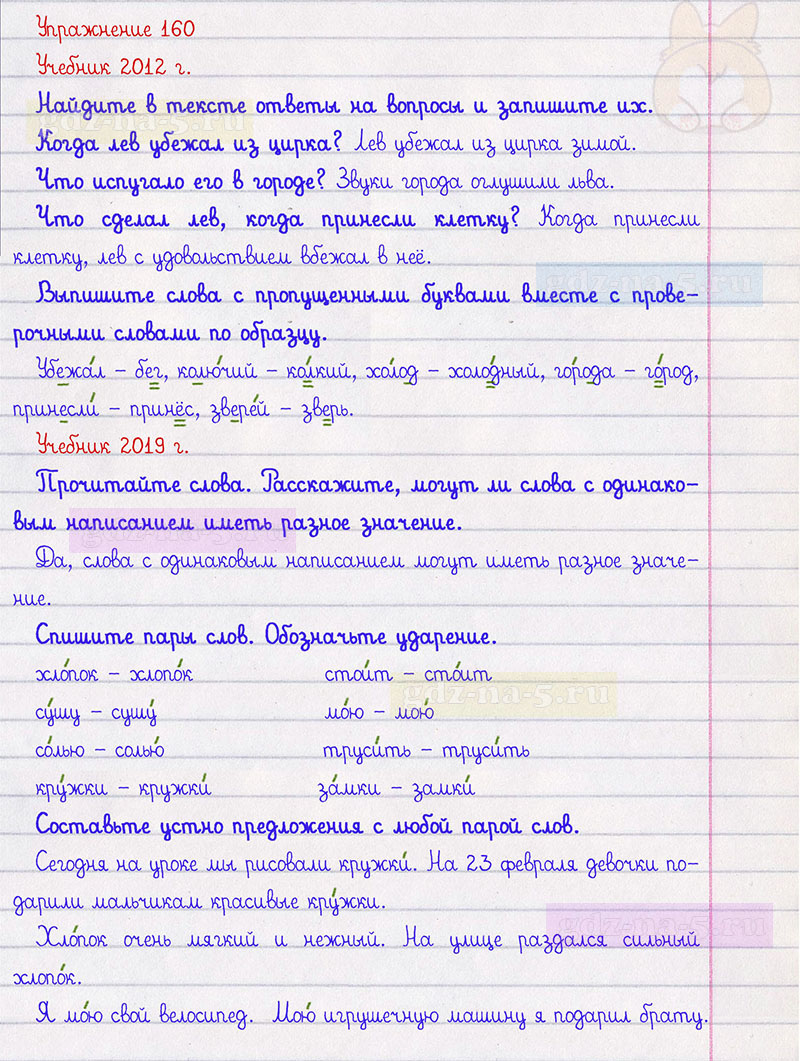 Упражнение 160
Учебник 2012 г.
Найдите в тексте ответы на вопросы и запишите их.
Когда лев убежал из цирка? Лев убежал из цирка зимой.
Что испугало его в городе? Звуки города оглушили льва.
Что сделал лев, когда принесли клетку? Когда принесли
клетку, лев с удовольствием вбежал в неё.
Выпишите слова с пропущенными буквами вместе с прове-
рочными словами по образцу.
Убежа́л – бег, колю́чий – ко́лкий, хо́лод – холо́дный, города – го́род,
принесли́ – принёс, звере́й – зверь.
Учебник 2019 г.
Прочитайте слова. Расскажите, могут ли слова с одинако-
вым написанием иметь разное значение.
Да, слова с одинаковым написанием могут иметь разное значе-
ние.
Спишите пары слов. Обозначьте ударение.
хло́пок – хлопо́к стои́т – сто́ит
су́шу – сушу́ мо́ю – мою́
со́лью – солью́ труси́ть – труси́ть
кру́жки – кружки́ за́мки – замки́
Составьте устно предложения с любой парой слов.
Сегодня на уроке мы рисовали кружки́. На 23 февраля девочки по-
дарили мальчикам красивые кру́жки.
Хло́пок очень мягкий и нежный. На улице раздался сильный
хлопо́к.
Я мо́ю свой велосипед. Мою́ игрушечную машину я подарил брату.
gdz-na-5.ru
gdz-na-5.ru
gdz-na-5.ru
gdz-na-5.ru
gdz-na-5.ru